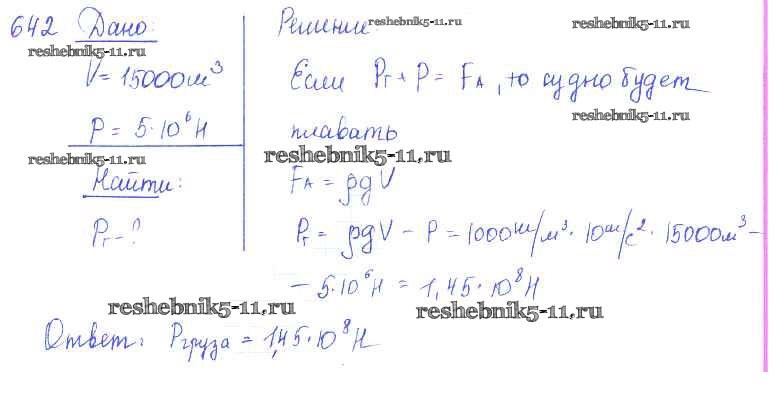 642 Дано:
reshebnik5-11.ru
V = 15000 м³
P = 5·10⁶ Н
reshebnik5-11.ru
Найти:
Pг - ?
Решение:
reshebnik5-11.ru
reshebnik5-11.ru
Если Pг + P = FA, то судно будет
reshebnik5-11.ru
плавать
reshebnik5-11.ru
FA = ρgV
Pг = ρgV - P = 1000 кг/м³ · 10 м/с² · 15000 м³ -
- 5·10⁶ Н = 1,45·10⁸ Н
reshebnik5-11.ru
reshebnik5-11.ru
Ответ: Pгруза = 1,45·10⁸ Н